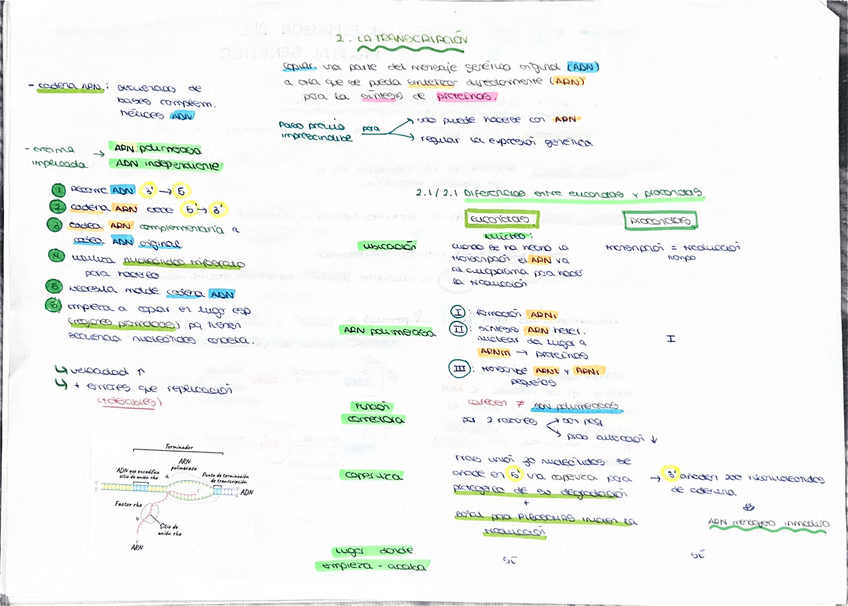 2. LA TRANSCRIPCIÓN
copiar una parte del mensaje genético original (ADN)
a otra que se pueda sintetizar directamente (ARN)
para la síntesis de proteínas.
Paso previo
imprescindible para
→ solo puede hacerse con ARN
→ regular la expresión genética
- cadena ARN: secuencias de
bases complem.
hélices ADN
- enzima
implicada →
ARN polimerasa
ADN independiente
1 Recorre ADN 3' → 5'
2 cadena ARN crece 5' → 3'
3 cadena ARN complementaria a
cadena ADN original
4 utiliza nucleótidos trifosfato
para hacerlo
5 necesita molde cadena ADN
6 empieza a copiar en lugar esp
(regiones promotoras) pq tienen
secuencia nucleótidos concreta.
↳ velocidad ↑
↳ + errores que replicación
(+ tolerables)
Terminador
ADN que encodifica
sitio de unión rho
ARN
polimerasa
Punto de terminación
de transcripción
ADN
Factor rho
Sitio de
unión rho
ARN
2.1/2.1 Diferencias entre eucariotas y procariotas
eucariotas
procariotas
ubicación
núcleo:
cuando se ha hecho la
transcripción el ARN va
al citoplasma para hacer
la traducción
transcripción = traducción
tiempo
ARN polimerasa
I: formación ARNr
II: síntesis ARN heter.
nuclear da lugar a
ARNm → proteínas
III: transcribe ARNt y ARNr
pequeños
I
función
correctora
carecen ≠ ADN polimerasas
por 2 razones
caperuza
tras unir 30 nucleótidos se
añade en 5' una caperuza para
protegerlo de su degradación
+
señal para RIBOSOMAS inicien la
traducción
→ 3' añaden 200 ribonucleótidos
de adenina
ARN mensajero inmaduro
lugar donde
empieza - acaba
sí
sí